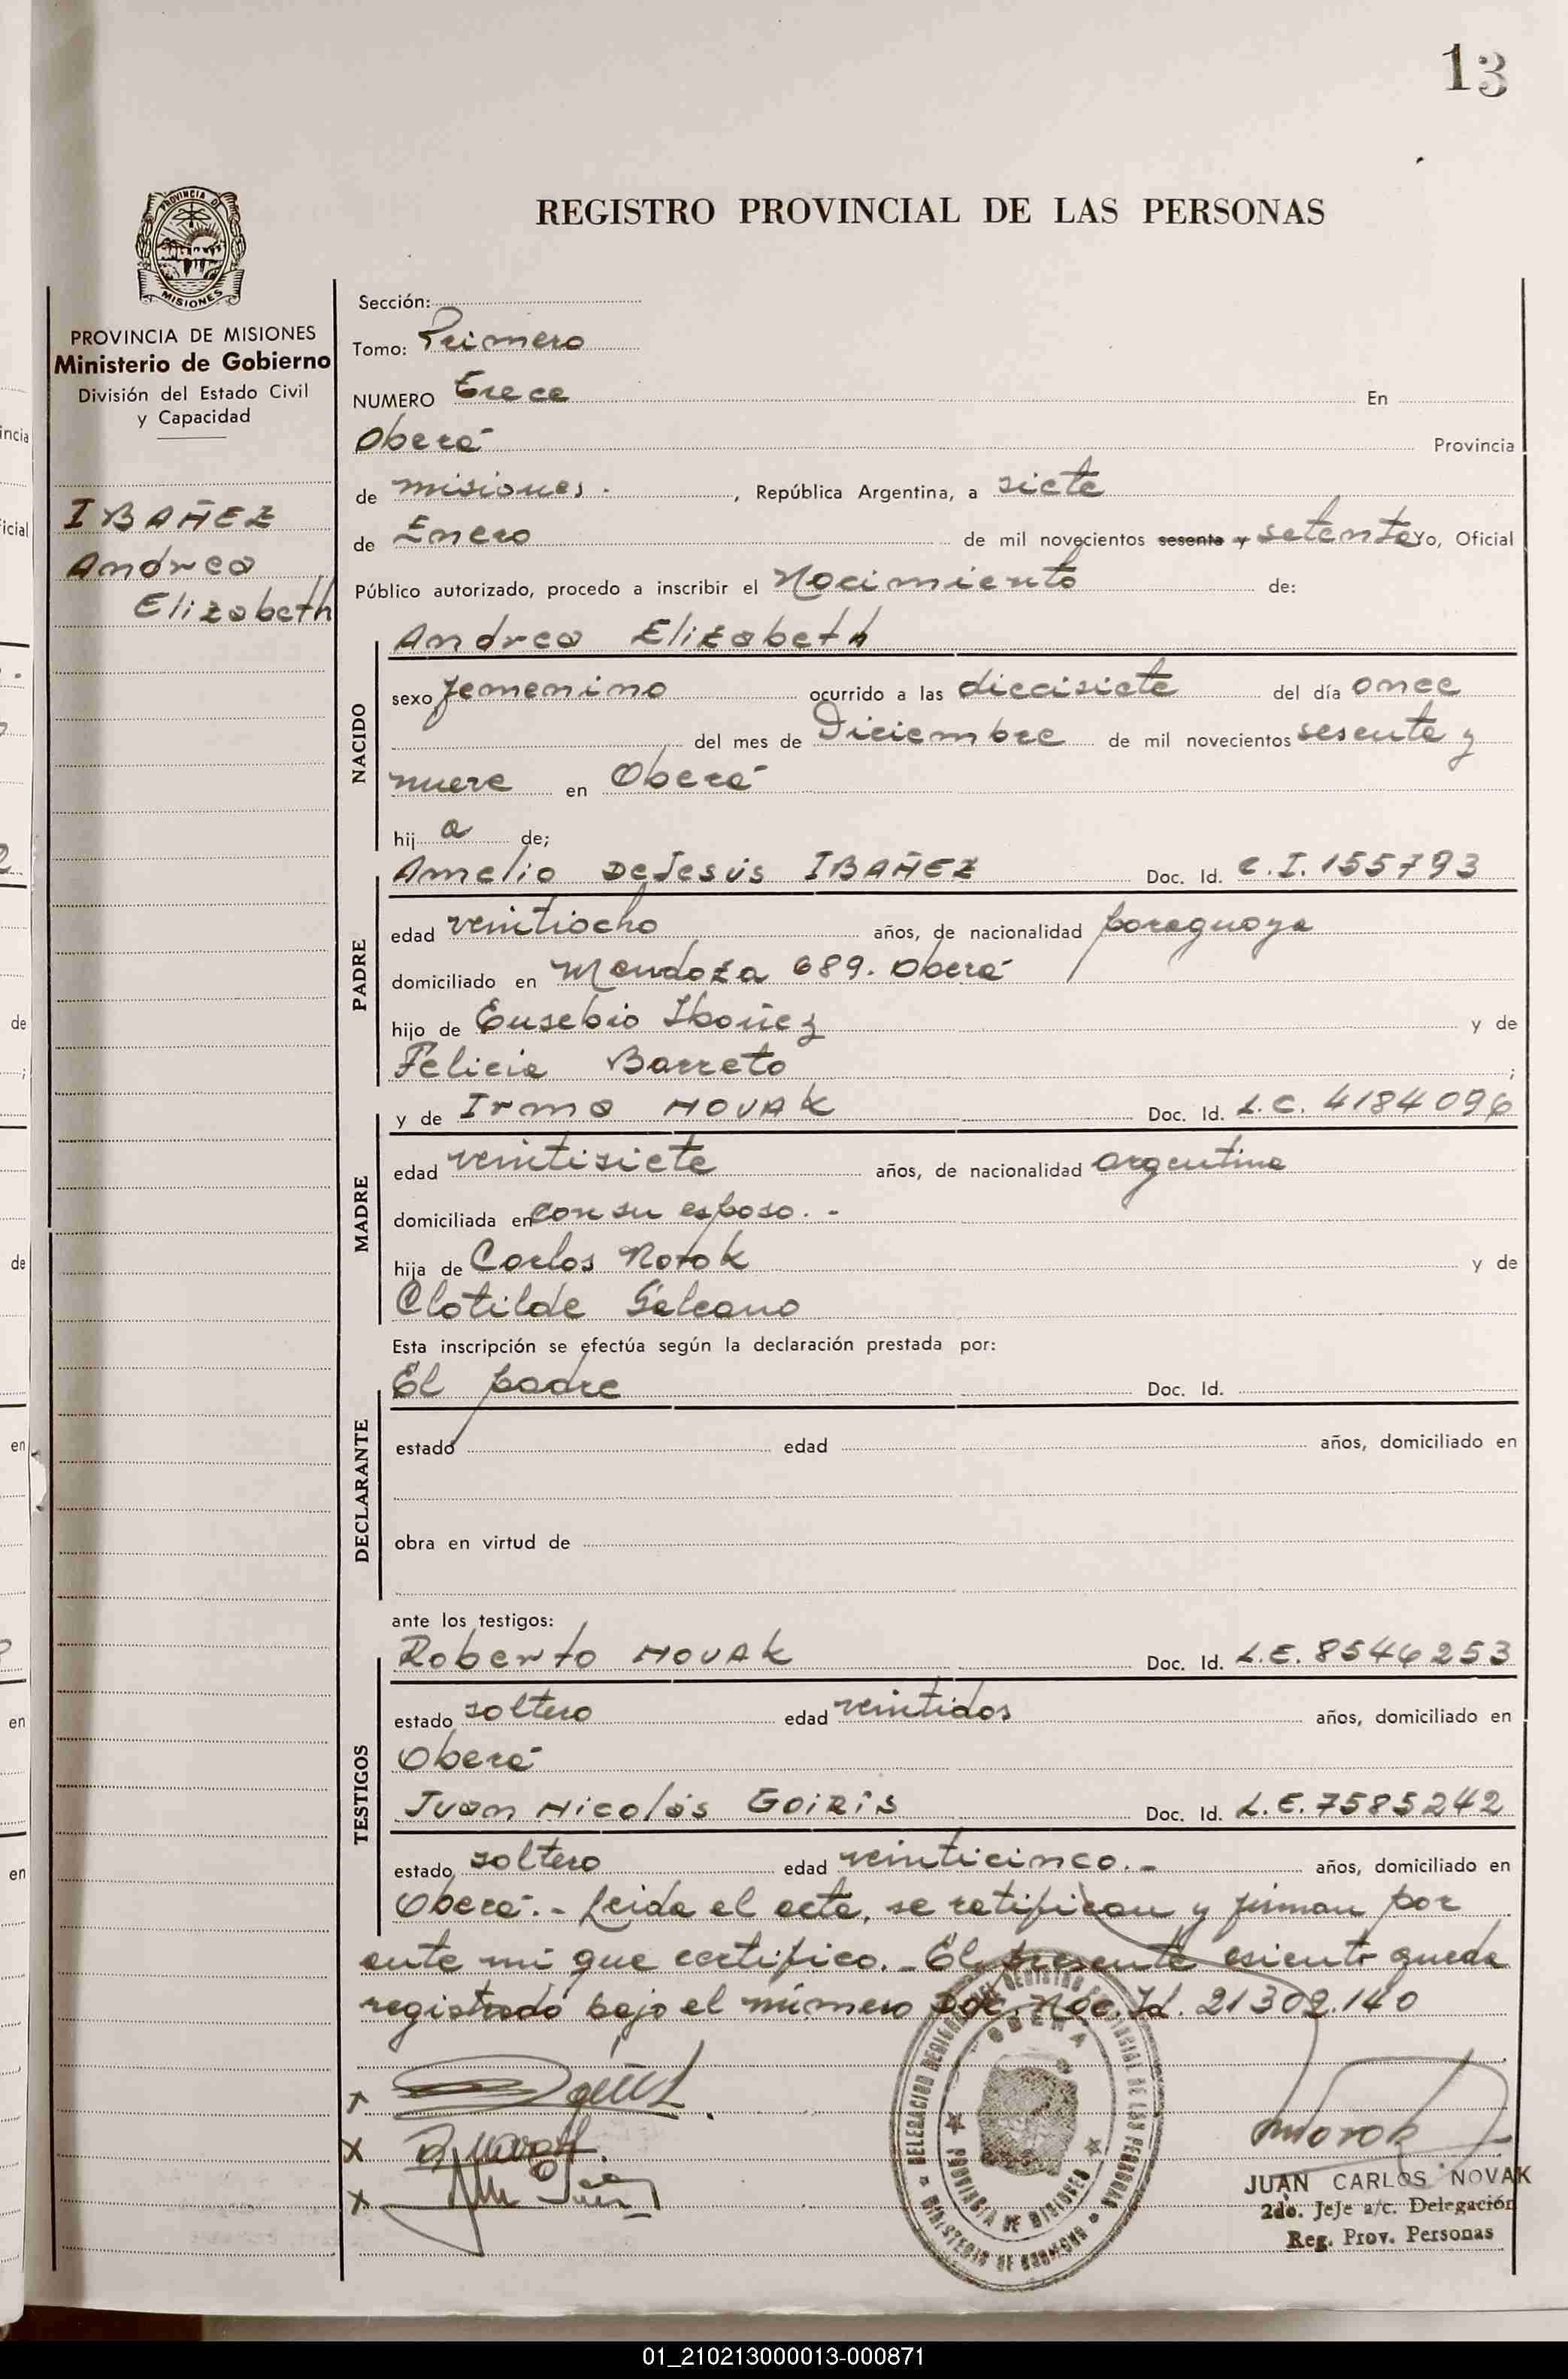 13
REGISTRO PROVINCIAL DE LAS PERSONAS
PROVINCIA DE MISIONES
PROVINCIA DE MISIONES
Ministerio de Gobierno
División del Estado Civil
y Capacidad
IBAÑEZ
Andrea
Elizabeth
Sección:
Tomo: Primero
NUMERO Trece En
Oberá Provincia
de misiones.- , República Argentina, a siete
de Enero de mil novecientos sesenta y setenta Yo, Oficial
Público autorizado, procedo a inscribir el Nacimiento de:
NACIDO
Andrea Elizabeth
sexo femenino ocurrido a las diecisiete del día once
del mes de Diciembre de mil novecientos sesenta y
nueve en Oberá
hij a de;
PADRE
Amelio DeJesús IBAÑEZ Doc. Id. C.I. 155793
edad veintiocho años, de nacionalidad paraguaya
domiciliado en Mendoza 689. Oberá
hijo de Eusebio Ibañez y de
Felicia Barreto ;
MADRE
y de Irma NOVAK Doc. Id. L.C. 4184096
edad veintisiete años, de nacionalidad argentina
domiciliada en con su esposo.-
hija de Carlos Novak y de
Clotilde Galeano
Esta inscripción se efectúa según la declaración prestada por:
DECLARANTE
El padre Doc. Id.
estado edad años, domiciliado en
obra en virtud de
ante los testigos:
TESTIGOS
Roberto NOVAK Doc. Id. L.E. 8546253
estado soltero edad veintidos años, domiciliado en
Oberá
Juan Nicolás GOIRIS Doc. Id. L.E. 7585242
estado soltero edad veinticinco.- años, domiciliado en
Oberá.- Leida el acta, se ratifican y firman por
ante mi que certifico.- El presente asiento queda
registrado bajo el número Doc. Nac. Id. 21302.140
DELEGACION REGIONAL DEL REGISTRO PROVINCIAL DE LAS PERSONAS
OBERA
PROVINCIA DE MISIONES
MINISTERIO DE GOBIERNO
Novak
JUAN CARLOS NOVAK
2do. JeJe a/c. Delegación
Reg. Prov. Personas
01_210213000013-000871